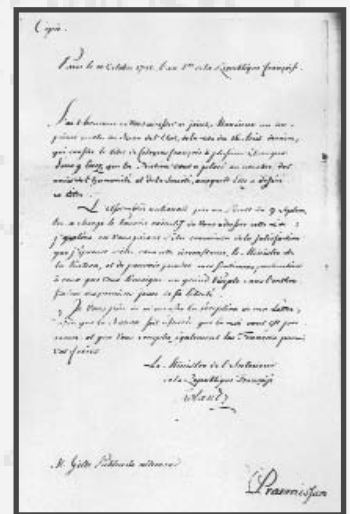 Copie.
Paris le 10 Octobre 1792. l'an 1er de la République françoise.
J'ai l'honneur de vous adresser ci-joint, Monsieur un im-
primé revêtu du Sceau de l'Etat, de la Loi du 26 Août dernier,
qui confère le titre de Citoyens françois à plusieurs Etrangers
Vous y lirez, que la Nation vous a placé au nombre des
amis de l'humanité et de la Société, auxquels Elle a déféré
ce titre.
L'Assemblée nationale par un Décret du 9 Septem-
bre, a chargé le Pouvoir exécutif de Vous adresser cette Loi;
j'y obéis, en vous priant d'être convaincu de la satisfaction
que j'éprouve d'être, dans cette circonstance, le Ministre de
la Nation, et de pouvoir joindre mes sentimens particuliers
à ceux que vous témoigne un grand Peuple dans l'enthou-
siasme des premiers jours de sa liberté.
Je Vous prie de m'accuser la réception de ma Lettre,
afin que la Nation soit assurée que la Loi vous est par-
venue, et que Vous comptez également les François parmi
vos frères.
Le Ministre de l'Intérieur
de la République Françoise
Roland
M. Gille Publiciste allemand